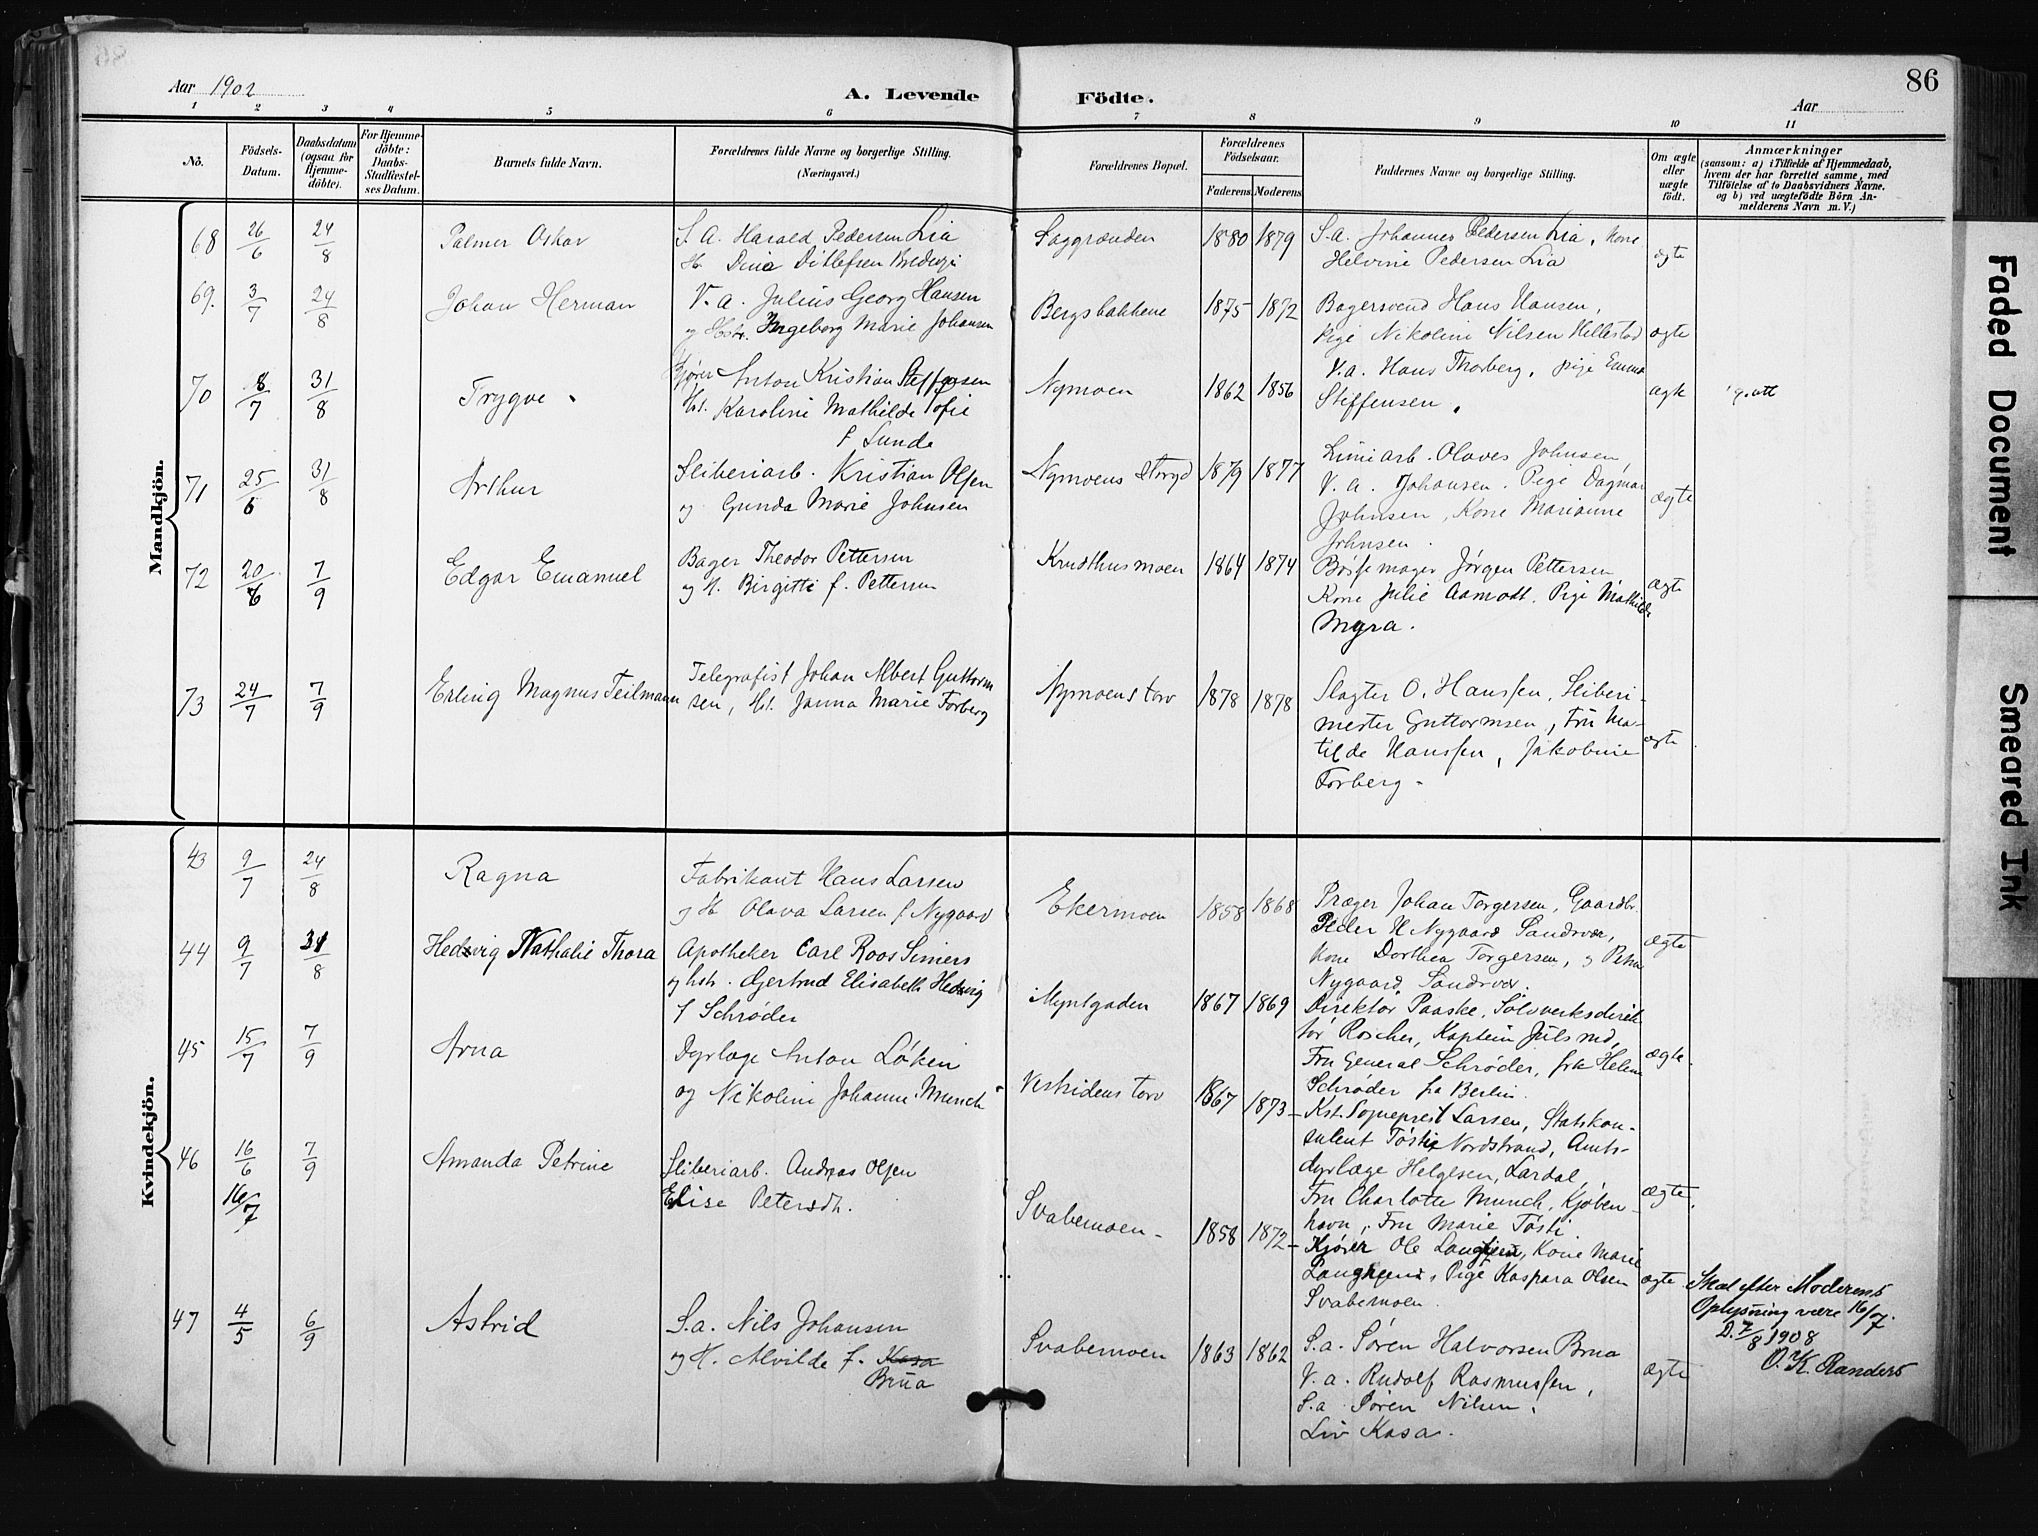 Aar 1902
A. Levende Födte.
Aar
86
1 2 3 4 5 6 7 8 9 10 11
No.
Födsels-Datum.
Daabsdatum (ogsaa for Hjemme-döbte).
For Hjemme-döbte: Daabs-Stadfæstel-ses Datum.
Barnets fulde Navn.
Forældrenes fulde Navne og borgerlige Stilling. (Næringsvei.)
Forældrenes Bopæl.
Forældrenes Födselsaar.
Faderens. Moderens.
Faddernes Navne og borgerlige Stilling.
Om ægte eller uægte födt.
Anmærkninger
(saasom: a) i Tilfælde af Hjemmedaab, hvem der har forrettet samme, med Tilföielse af to Daabsvidners Navne, og b) ved uægtefödte Börn An-melderens Navn m. V.)
Mandkjön.
68 26/6 24/8 Palmer Oskar
S. A. Harald Pedersen Lia
H. Dina Ditlefsen
Saggrænden 1880 1879
S.a. Johannes Pedersen Lia, Kone
Helvine Pedersen Lia
ægte
69. 3/7 24/8 Johan Herman
V. a. Julius Georg Hansen
og Hstr. Ingeborg Marie Johansen
Bergsbakkene 1875 1872
Bagersvend Hans Hansen,
Pige Nikoline Nilsen Hillestad
ægte
70 8/7 31/8 Trygve
Kjører Anton Kristian Steffensen
Hst. Karoline Mathilde Sofie
f Lunde
Nymoen 1862 1856
V.a. Hans Thorberg, pige Emma
Steffensen.
ægte
71 25/6 31/8 Arthur
Sliberiarb. Kristian Olsen
og Gunda Marie Johnsen
Nymoens Storgd 1879 1877
Limiarb. Olaves Johnsen,
V. a. Johansen. Pige Dagmar
Johnsen, Kone Marianne
Johnsen.
ægte
72 20/6 7/9 Edgar Emanuel
Bager Theodor Pettersen
og H. Birgitte f. Pettersen
Krudthusmoen 1864 1874
Børsemager Jørgen Pettersen
Kone Julie Aamodt. Pige Mathilde
Myra.
ægte
73 24/7 7/9 Erling Magnus Teilmann
Telegrafist Johan Albert Guttorm
sen, Hst. Janna Marie Forberg
Nymoens torv 1878 1878
Slagter O. Hanssen, Sliberi-
mester Guttormsen, Fru Ma-
tilde Hanssen, Jakobine
Forberg -
ægte
Kvindekjön.
43 9/7 24/8 Ragna
Fabrikant Hans Larsen
og H Olava Larsen f Nygaard
Ekermoen 1858 1868
Præger Johan Torgersen, Gaardbr.
Peder H Nygaard Sandsvær,
Kone Dorthea Torgersen, og Petra
Nygaard, Sandsvær.
ægte
44 9/7 31/8 Hedevig Nathalie Thora
Apotheker Carl Roos Simers
og hstr. Gjertrud Elisabeth Hedvig
f Schrøder
Myntgaden 1867 1869
Direktør Paaske, Sølvverksdirek
tør Roscher, Kaptein Julsrud,
Fru General Schrøder, frk Helene
Schrøder fra Berlin.
ægte.
45 15/7 7/9 Arna
Dyrlæge Anton Løken
og Nikoline Johanne Munch
Vestsidens torv 1867 1873
Kst. Sogneprest Larsen, Statskon-
sulent Tøsti Nordstrand, Amts-
dyrlæge Helgesen, Lardal,
Fru Charlotte Munch, Kjøben-
havn, Fru Marie Tøsti
ægte.
46 16/6 7/9 Amanda Petrine
16/7
Sliberiarb. Andreas Olsen
Elise Petersdt.
Svabemoen - 1858 1872
Kjører Ole Langhjens, Kone Marie
Langhjens, Pige Kaspara Olsen
Svabemoen.
ægte.
Skal efter Moderens
Oplysning være 16/7.
D. 7/8 1908
O. K. Randers
47 4/5 6/9 Astrid
S.a. Nils Johansen
og H. Alvilde f. Kasa
Brua
Svabemoen 1863 1862
S.a. Søren Halvorsen Brua
V. a. Rudolf Rasmussen,
S.a Søren Nilsen,
Liv Kasa.
ægte
Faded Document
Smeared Ink